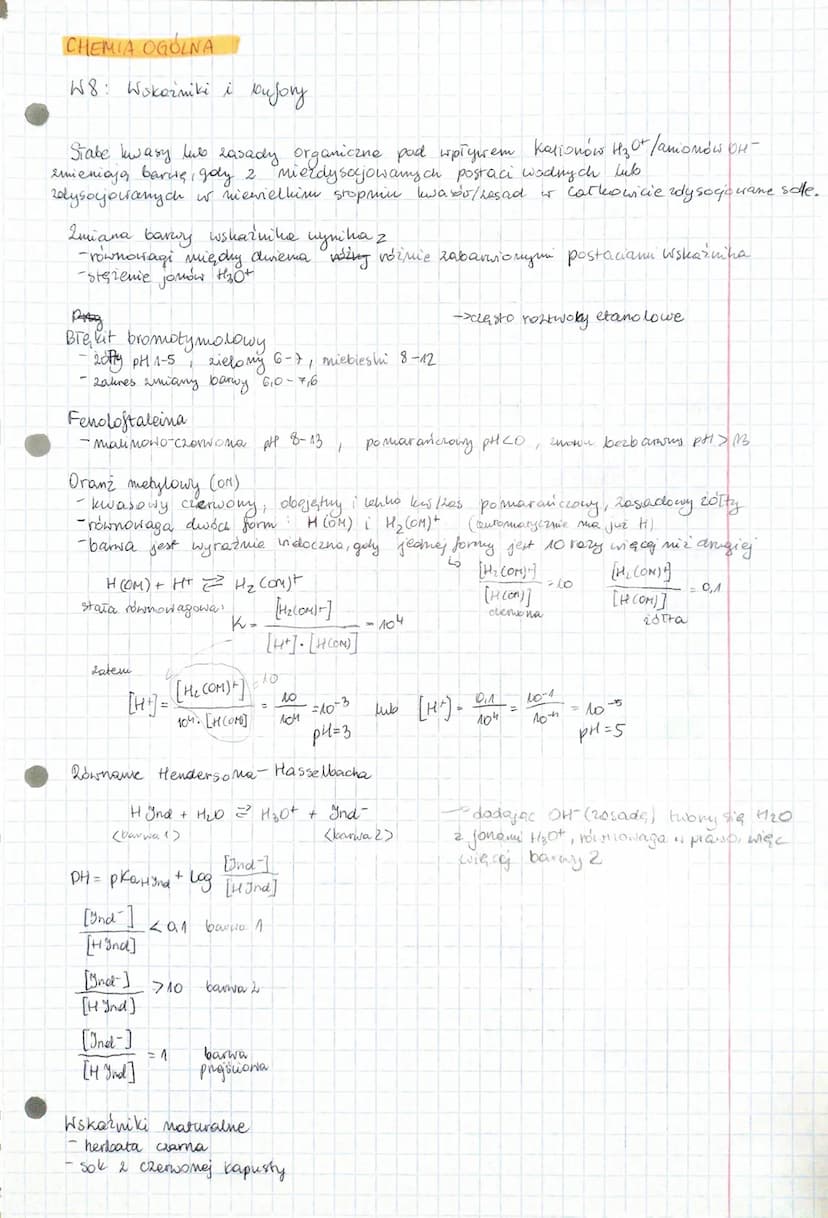 CHEMIA OGÓLNA
W8: Wskaźniki i bufory
Słabe kwasy lub zasady organiczne pod wpływem kationów H₃O⁺/anionów OH⁻
zmieniają barwę, gdy z niezdysocjowanych postaci wodnych lub
zdysocjowanych w niewielkim stopniu kwasów/zasad w całkowicie zdysocjowane sole.
Zmiana barwy wskaźnika wynika z
- równowagi między dwiema różnie zabarwionymi postaciami wskaźnika
- stężenie jonów H₃O⁺
→ często roztwory etanolowe
Błękit bromotymolowy
- żółty pH 1-5, zielony 6-7, niebieski 8-12
- zakres zmiany barwy 6,0-7,6
Fenoloftaleina
- malinowo-czerwona pH 8-13, pomarańczowy pH<0, znowu bezbarwny pH>13
Oranż metylowy (OM)
- kwasowy czerwony, obojętny i lekko kws/zas pomarańczowy, zasadowy żółty
- równowaga dwóch form: H(OM) i H₂(OM)⁺ (automatycznie ma już H)
- barwa jest wyraźnie widoczna, gdy jednej formy jest 10 razy więcej niż drugiej
↳ [H₂(OM)⁺]/[H(OM)] = 10 czerwona [H₂(OM)⁺]/[H(OM)] = 0,1 żółta
H(OM) + H⁺ ⇄ H₂(OM)⁺
stała równowagowa:
K = [H₂(OM)⁺]/[H⁺]·[H(OM)] = 10⁴
zatem
[H⁺] = [H₂(OM)⁺]/10⁴·[H(OM)] = 10/10⁴ = 10⁻³ lub [H⁺] = 0,1/10⁴ = 10⁻¹/10⁻⁴ = 10⁻⁵
= 10
pH=3 pH=5
Równanie Hendersona-Hasselbacha
H Ind + H₂O ⇄ H₃O⁺ + Ind⁻
<barwa 1> <barwa 2>
→ dodając OH⁻ (zasadę) tworzy się H₂O
z jonami H₃O⁺, równowaga w prawo, więc
więcej barwy 2
pH = pKa HInd + log [Ind⁻]/[H Ind]
[Ind⁻]/[H Ind] < 0,1 barwa 1
[Ind⁻]/[H Ind] > 10 barwa 2
[Ind⁻]/[H Ind] = 1 barwa przejściowa
Wskaźniki naturalne
- herbata czarna
- sok z czerwonej kapusty